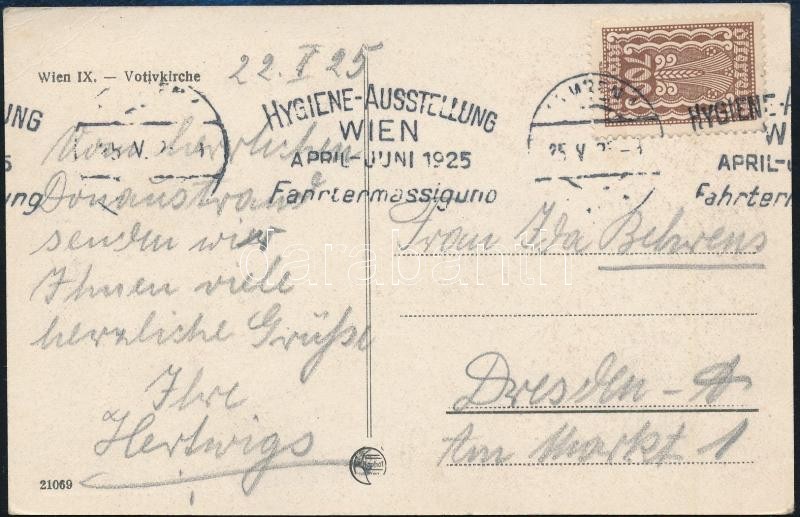 Wien IX. — Votivkirche
22. V 25
HYGIENE-AUSSTELLUNG
WIEN
APRIL-JUNI 1925
Fahrtermässigung
25 V 25
HYGIENE-A
W
APRIL-J
Fahrterm
UNG
5
ung
700
Vom herrlichen
Donaustrand
senden wir
Ihnen viele
herzliche Grüße
Ihre
Hertwigs
Frau Ida Behrens
Dresden - A
Am Markt 1
21069
darabanth